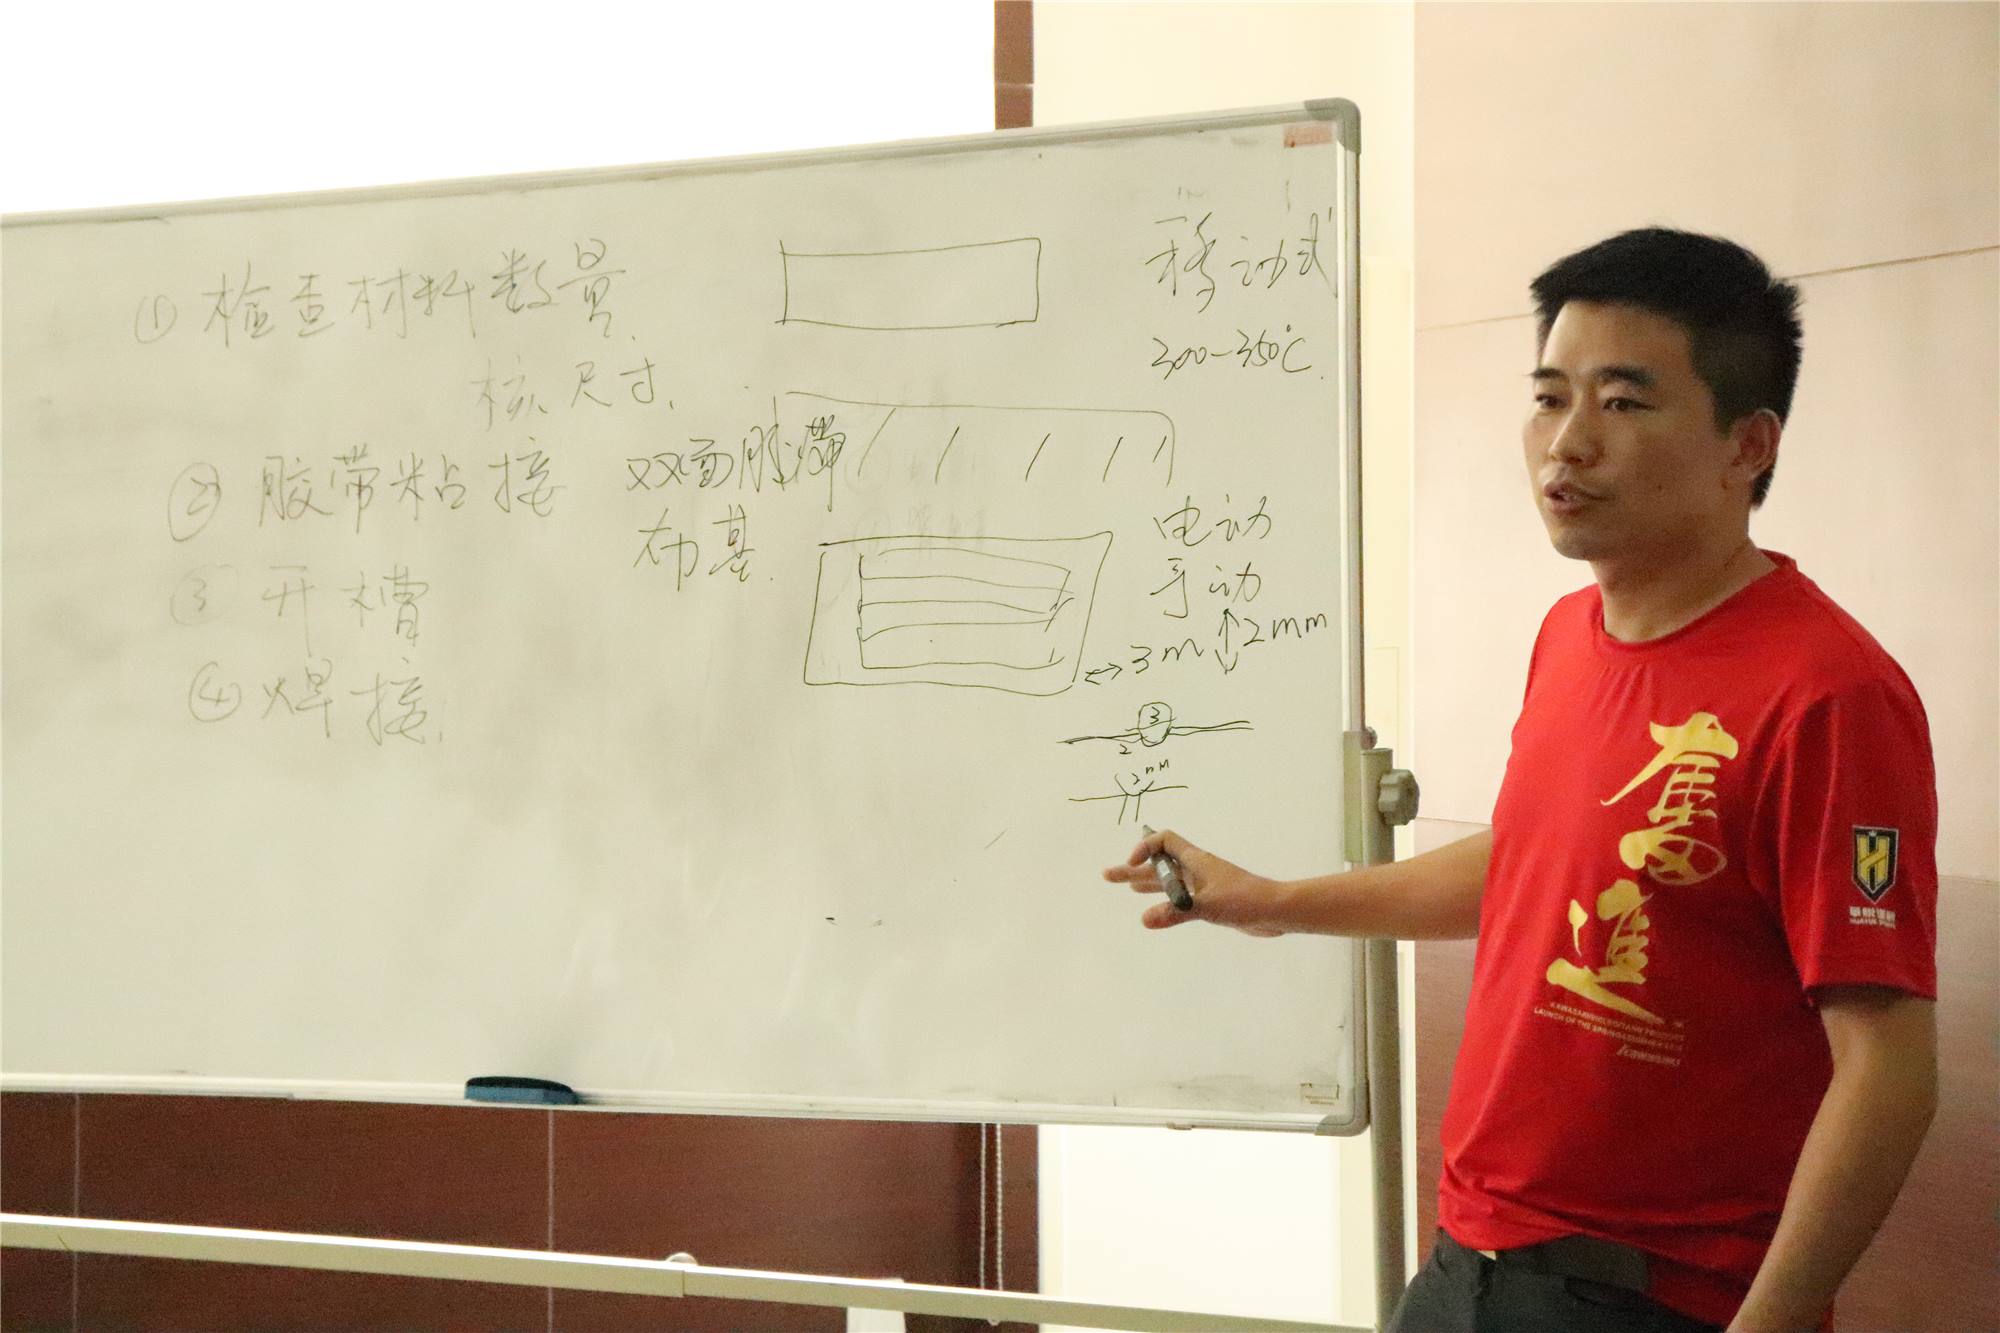 ① 检查材料数量.
核尺寸.
② 胶带粘接
双面胶带
布基.
③ 开槽
④ 焊接.
移动式
300-350℃.
电动
手动
↔3m ↕2mm
3
2
2mm
奮進
LAUNCH OF THE SPRING&SUMMER
H